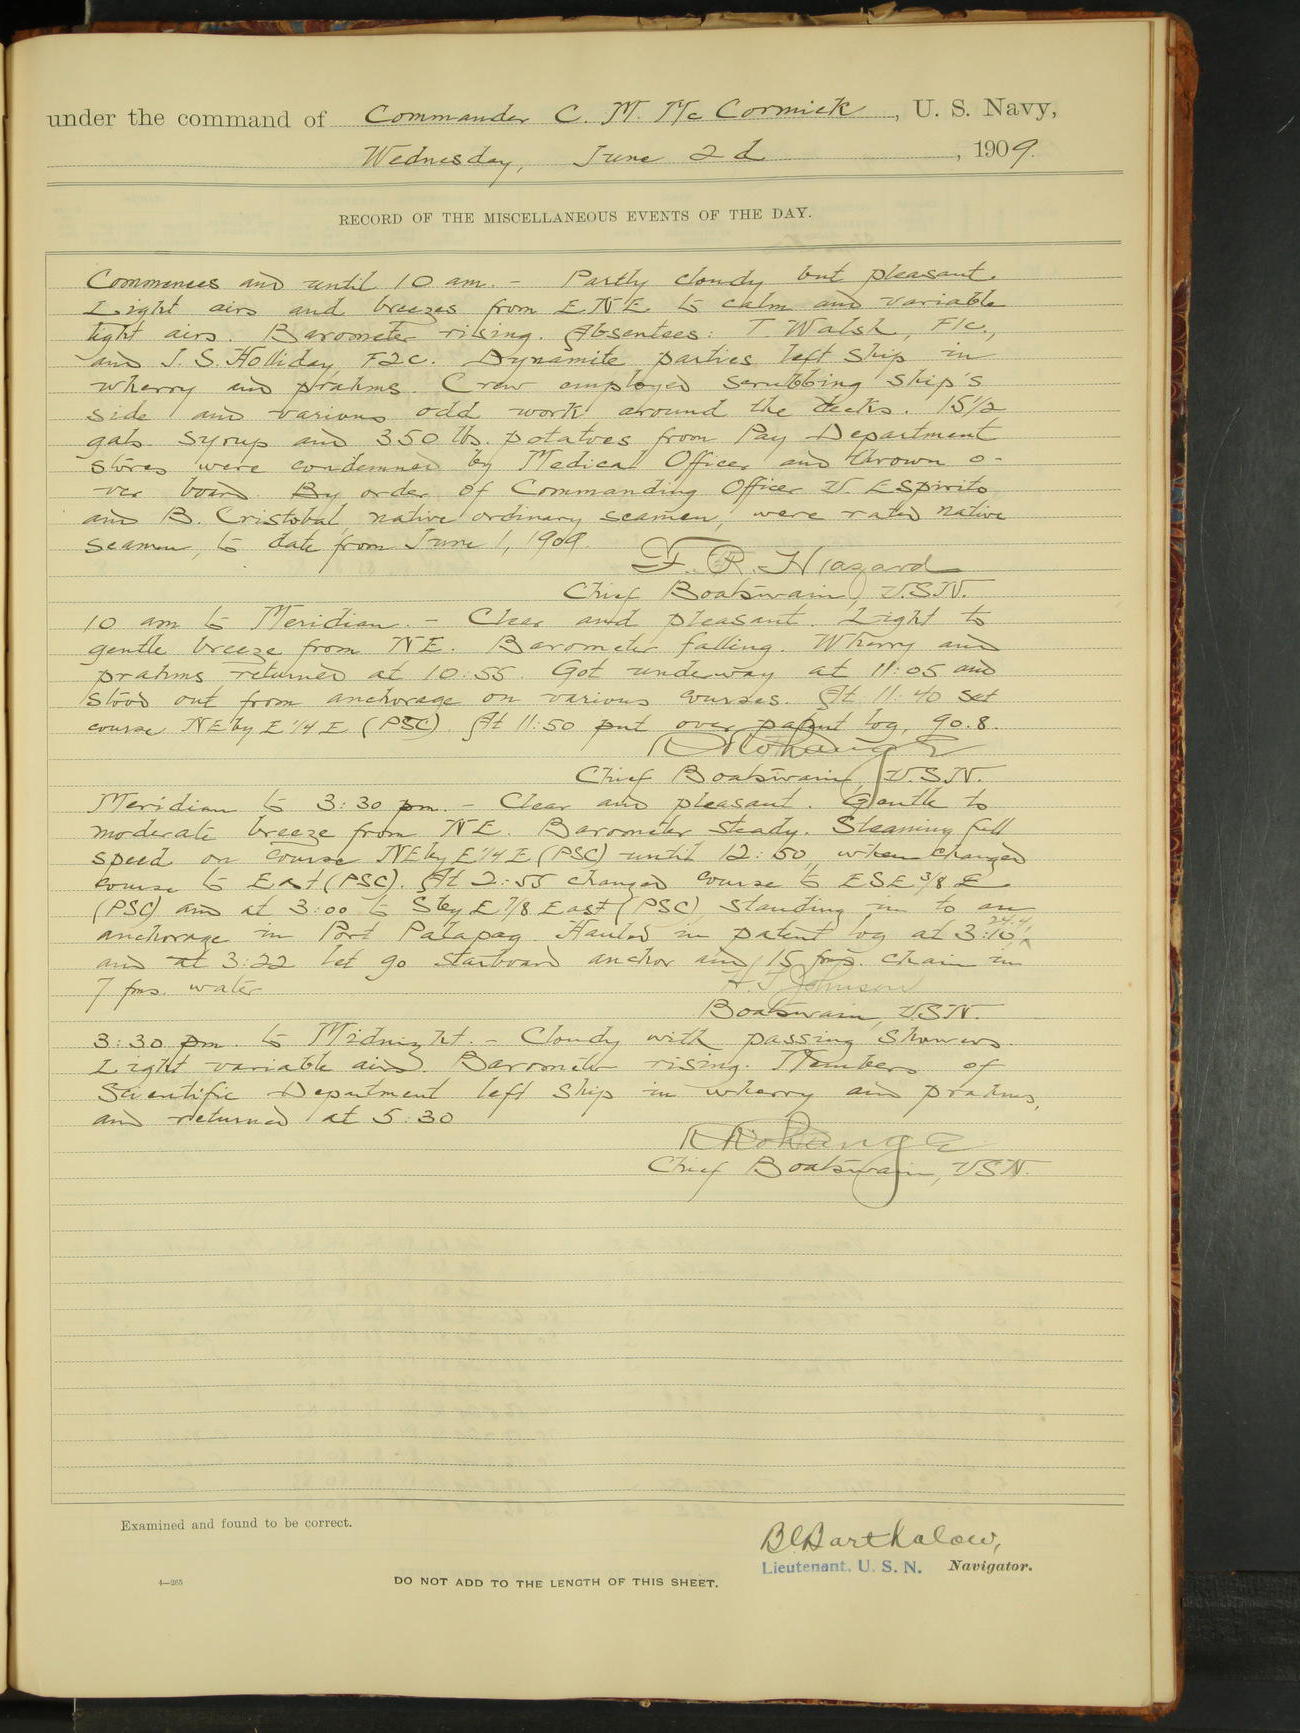 under the command of Commander C. M. McCormick, U. S. Navy,
Wednesday, June 2d, 1909.
RECORD OF THE MISCELLANEOUS EVENTS OF THE DAY.
Commences and until 10 am. - Partly cloudy but pleasant.
Light airs and breezes from ENE to calm and variable
light airs. Barometer rising. Absentees: T. Walsh, F1c.,
and J. S. Holliday, F2c. Dynamite parties left ship in
wherry and prahms. Crew employed scrubbing ship's
side and various odd work around the decks. 15½
gals. syrup and 350 lbs. potatoes from Pay Department
stores were condemned by Medical Officer and thrown o-
ver board. By order of Commanding Officer V. Espirito
and B. Cristobal, native ordinary seamen, were rated native
seamen, to date from June 1, 1909.
F. R. Hazard
Chief Boatswain, U.S.N.
10 am to Meridian. - Clear and pleasant. Light to
gentle breeze from NE. Barometer falling. Wherry and
prahms returned at 10:55. Got underway at 11:05 and
stood out from anchorage on various courses. At 11:40 set
course NE by E ¼ E (PSC). At 11:50 put over patent log, 90.8.
Chief Boatswain, U.S.N.
Meridian to 3:30 pm. - Clear and pleasant. Gentle to
moderate breeze from NE. Barometer steady. Steaming full
speed on course NE by E ¼ E (PSC) until 12:50, when changed
course to East (PSC). At 2:55 changed course to ESE ⅜ E
(PSC) and at 3:00 to S by E ⅞ East (PSC), standing in to an
anchorage in Port Palapag. Hauled in patent log at 3:10, 24.4,
and at 3:22 let go starboard anchor and 15 fms. chain in
7 fms. water
H. T. Johnson
Boatswain, U.S.N.
3:30 pm. to Midnight. - Cloudy with passing showers.
Light variable airs. Barometer rising. Members of
Scientific Department left ship in wherry and prahms,
and returned at 5:30
Chief Boatswain, USN.
Examined and found to be correct.
B C Barthalow,
Lieutenant, U. S. N. Navigator.
4—265
DO NOT ADD TO THE LENGTH OF THIS SHEET.